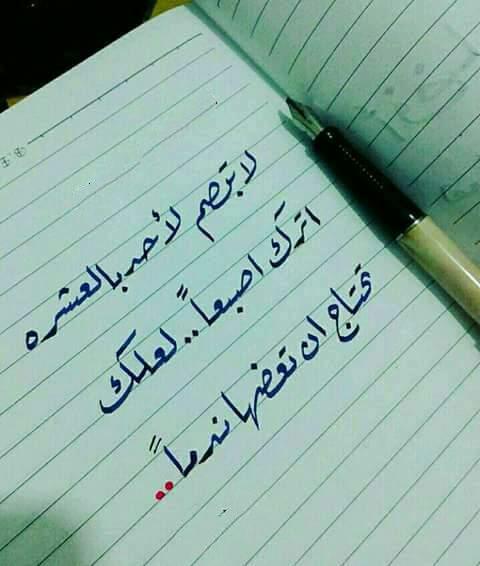 لا تبصم لأحد بالعشره
اترك اصبعاً.. لعلك
تحتاج ان تعضها ندماً..